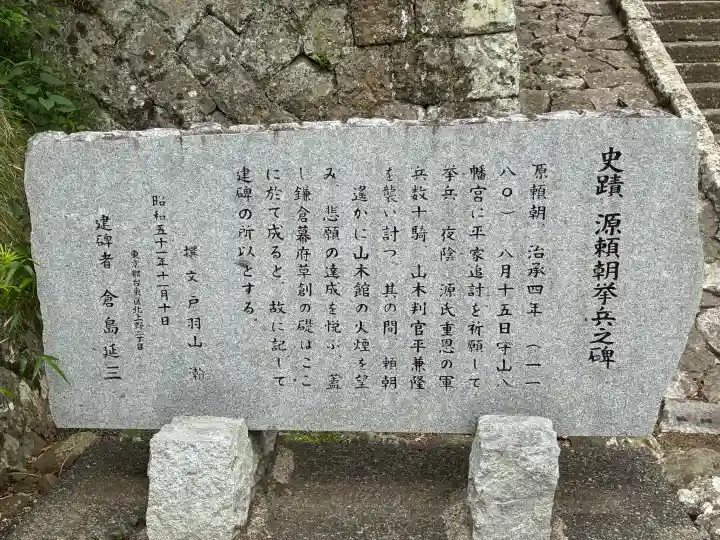 史蹟 源頼朝挙兵之碑
原頼朝、治承四年(一一
八〇)八月十五日守山八
幡宮に平家追討を祈願して
挙兵、夜陰、源氏重恩の軍
兵数十騎、山木判官平兼隆
を襲い討つ、其の間、頼朝、
遙かに山木館の火煙を望
み、悲願の達成を悦ぶ、蓋
し鎌倉幕府草創の礎はここ
に於て成ると、故に記して
建碑の所以とする。
撰文 戸羽山 瀚
昭和五十一年十一月十日
東京都台東区北上野一丁目
建碑者 倉島延三